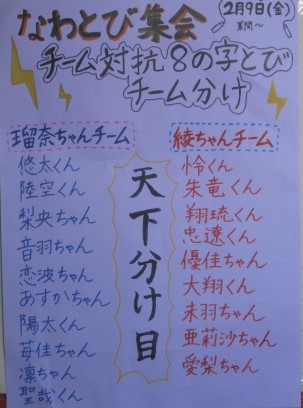 なわとび集会
2月9日(金)
業間～
チーム対抗8の字とび
チーム分け
瑠奈ちゃんチーム
悠太くん
陸空くん
梨央ちゃん
音羽ちゃん
恋波ちゃん
あすかちゃん
陽太くん
苺佳ちゃん
凛ちゃん
聖哉くん
天下分け目
綾ちゃんチーム
怜くん
朱竜くん
翔琉くん
忠遼くん
優佳ちゃん
大翔くん
未羽ちゃん
亜莉沙ちゃん
愛梨ちゃん